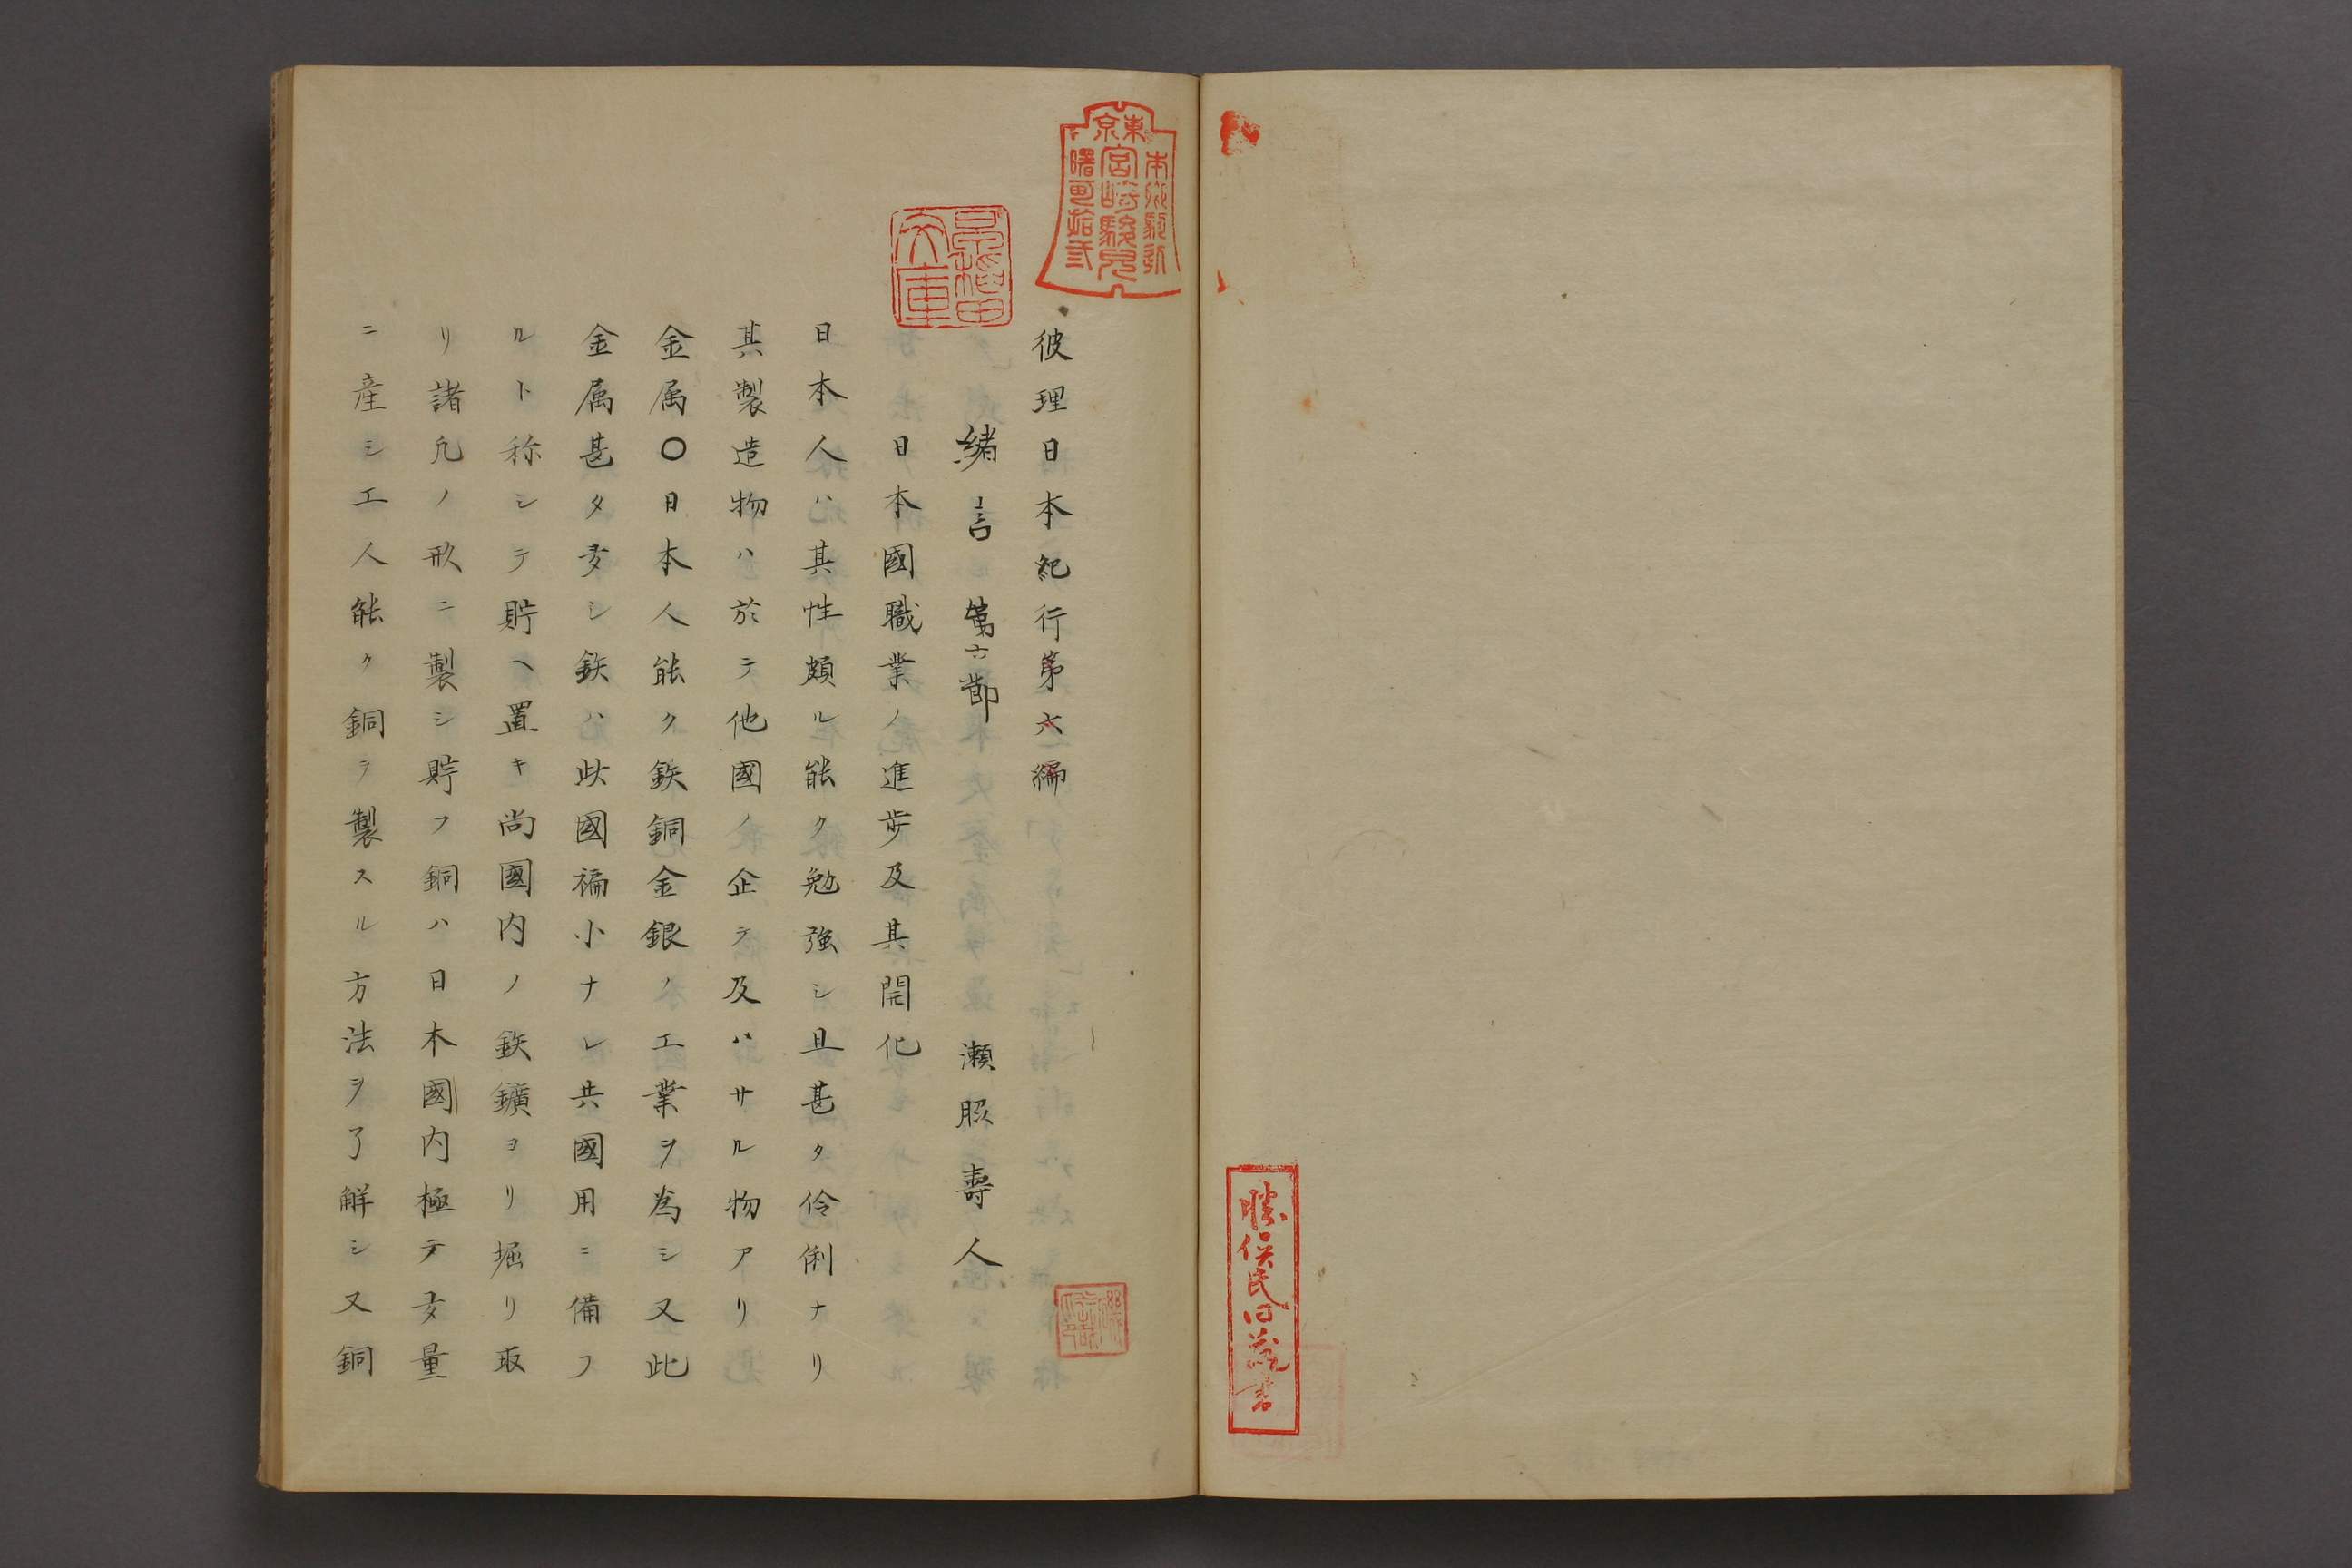 彼理日本紀行第六編
緒言 第六節 瀬脇壽人
日本國職業ノ進歩及其開化
日本人ハ其性頗ル能ク勉強シ且甚タ伶俐ナリ
其製造物ハ於テ他國ノ企テ及ハサル物アリ
金属〇日本人能ク鉄銅金銀ノ工業ヲ為シ又此
金属甚タ多シ鉄ハ此國褊小ナレ共國用ニ備フ
ルト称シテ貯ヘ置キ尚國内ノ鉄鑛ヨリ堀リ取
リ諸凢ノ形ニ製シ貯フ銅ハ日本國内極テ多量
ニ産シ工人能ク銅ヲ製スル方法ヲ了解シ又銅
東京
本郷駒込
宮崎駿児
曙町拾弐
文庫
勝俣氏旧蔵書